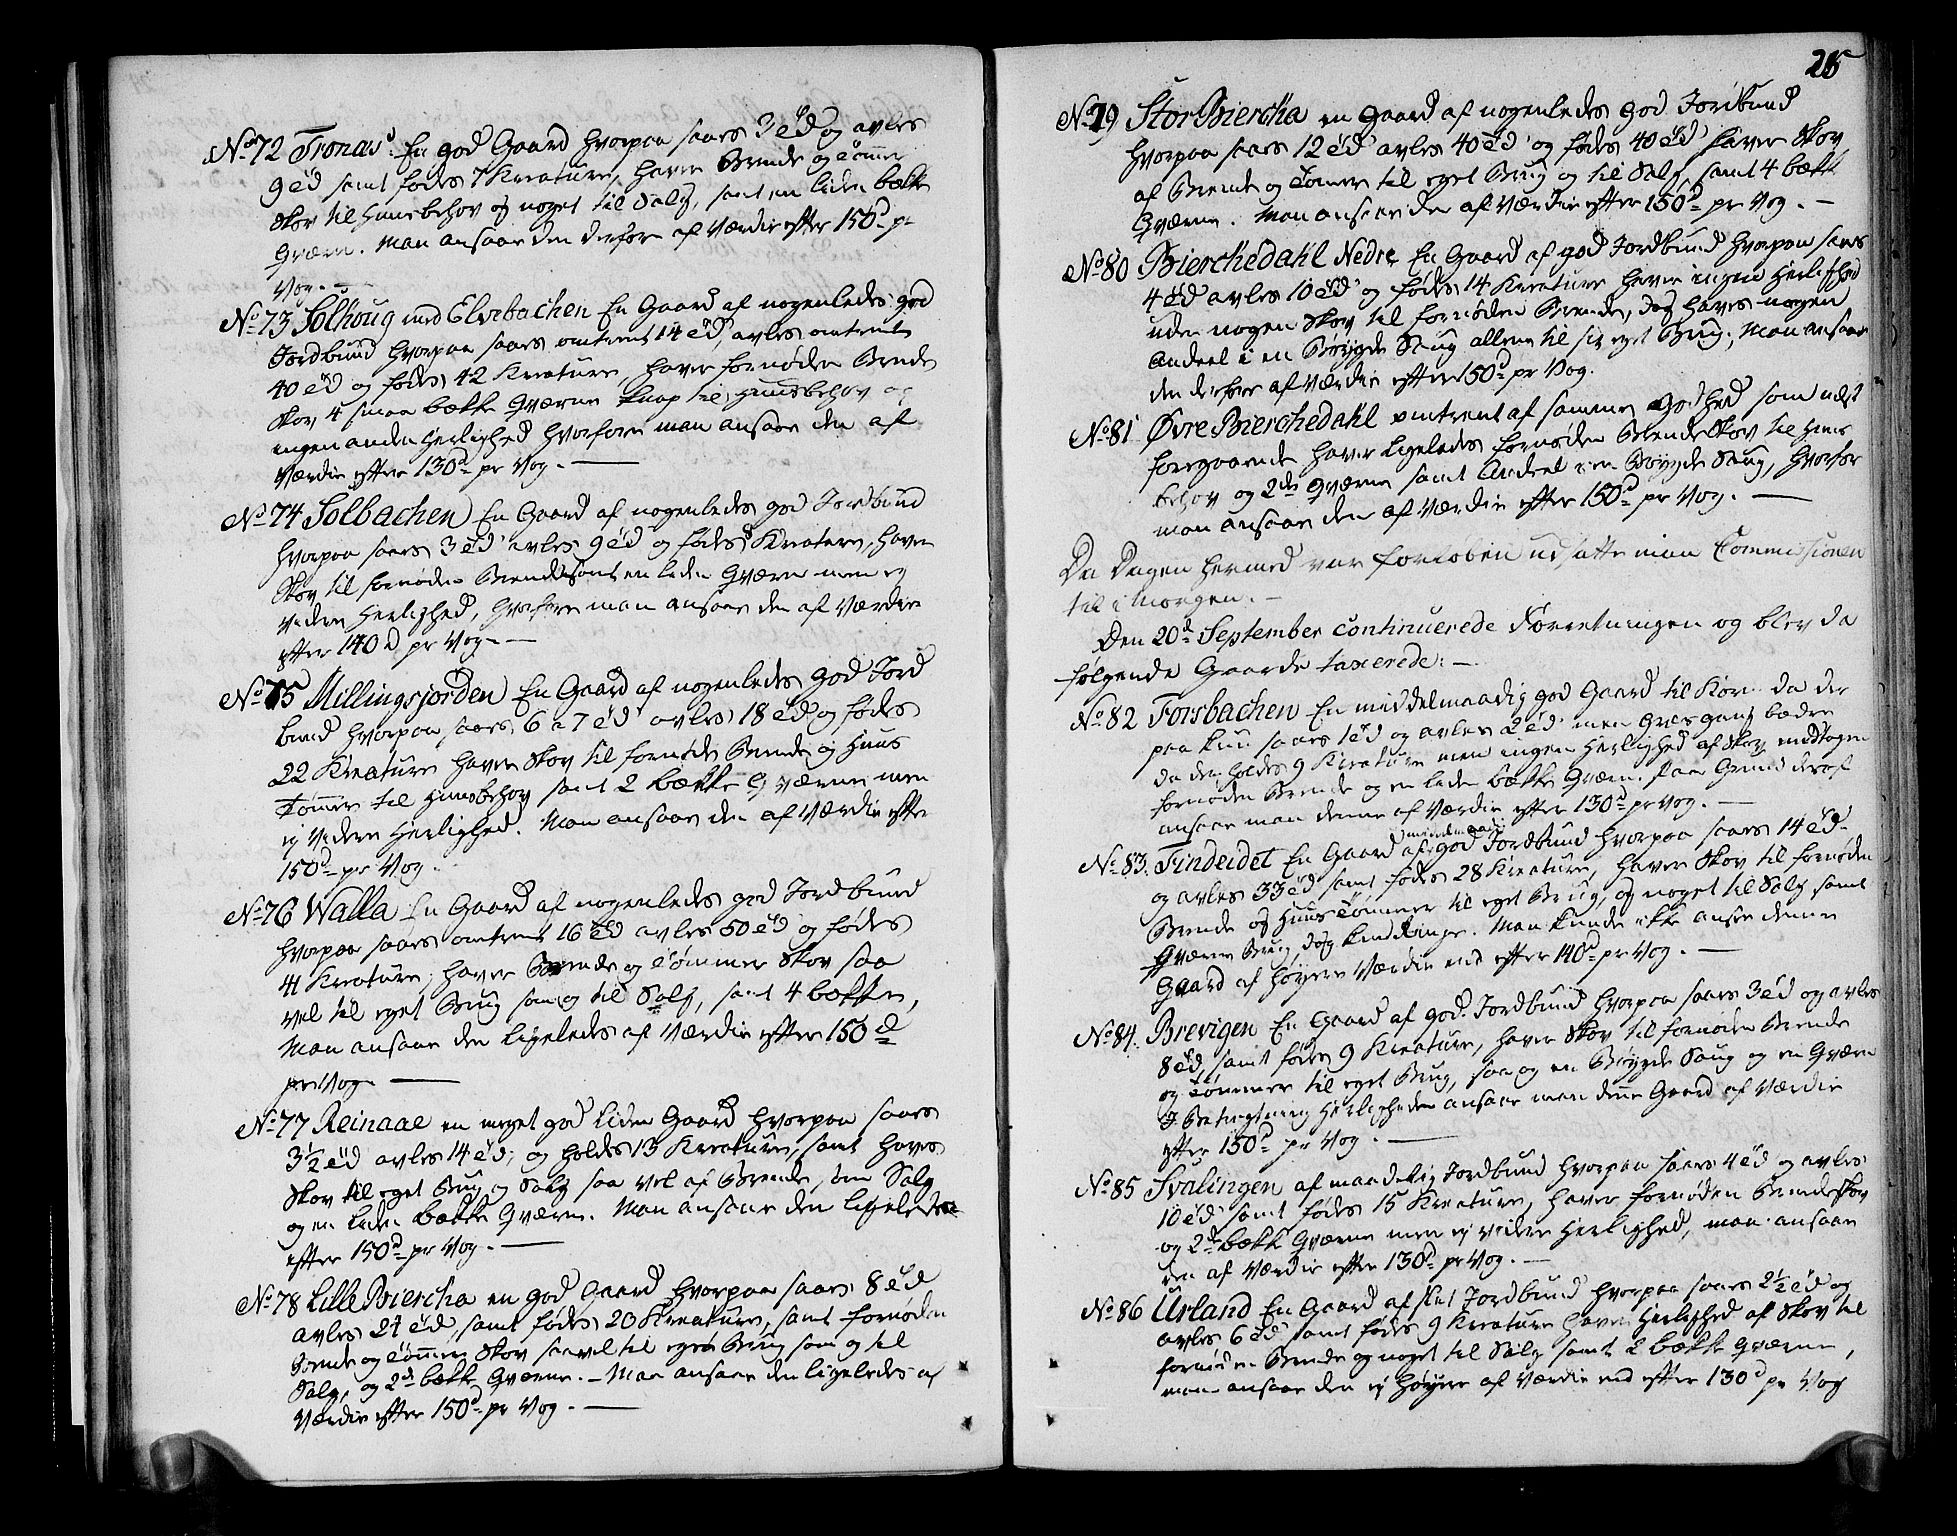 No 72 Tronæs En god Gaard hvorpaa saaes 3 td og avles
9 td samt fødes 7 Kreature, haver Brende og Tømmer
Skov til Huusbehov og noget til Salg, samt en liden bække
Qværn. Man ansaae den derfore af Værdie efter 150d pr
Vog. —
No 73 Solhoug med Elvebachen En Gaard af nogenledes god
Jordbund hvorpaa saaes omtrent 14 td, avles omtrent
40 td og fødes 42 Kreature, haver fornøden Brende
Skov 4 smaa bække Qværne knap til Huusbehov og
ingen anden Herlighed hvorfore man ansaae den af
Værdie efter 130d pr Vog. —
No 74 Solbachen En Gaard af nogenledes god Jordbund
hvorpaa saaes 3 td avles 9 td og fødes Kreature, haver
Skov til fornøden Brende samt en liden Qværn men ey
videre Herlighed, hvorfore man ansaae den af Værdie
efter 140d pr Vog. —
No 75 Millingsjorden En Gaard af nogenledes god Jord
bund hvorpaa saaes 6 a 7 td avles 18 td og fødes
22 Kreature haver Skov til fornøden Brende og Huus
Tømmer til Huusbehov samt 2 bække Qværne men
ej videre Herlighed. Man ansaae den af Værdie efter
150d pr Vog.
No 76 Walla En Gaard af nogenledes god Jordbund
hvorpaa saaes omtrent 16 td avles 50 td og fødes
41 Kreature, haver Brende og Tømmer Skov saa
vel til eget Brug som og til Salg, samt 4 bække,
Man ansaae den ligeledes af Værdie efter 150d
pr Vog. —
No 77 Reinaae en meget god liden Gaard hvorpaa saaes
3½ td avles 14 td, og holdes 13 Kreature, samt haves
Skov til eget Brug og Salg saa vel af Brende, som Salg
og en liden bække Qværn. Man ansaae den ligeledes
efter 150d pr Vog. —
No 78 Lille Biercha en god Gaard hvorpaa saaes 8 td
avles 24 td samt fødes 20 Kreature, samt fornøden
Brende og Tømmer Skov saavel til eget Brug som og til
Salg, og 2de bække Qværne. – Man ansaae den ligeledes af
Værdie efter 150d pr Vog. —
25
No 79 Stor Biercha en Gaard af nogenledes god Jordbund
hvorpaa saaes 12 td avles 40 td og fødes 40 td haver Skov
af Brende og Tømmer til eget Brug og til Salg, samt 4 bække
Qværne. Man ansaae den af Værdie efter 150d pr Vog. –
No 80 Bierchedahl Nedre En Gaard af god Jordbund hvorpaa saaes
4 td avles 10 td og fødes 14 Kreature haver ingen Herlighed
uden nogen Skov til fornøden Brende, dog haves nogen
Andeel i en Bøygde Saug allene til sit eget Brug, Man ansaae
den derfore af Værdie efter 150d pr Vog.
No 81 Øvre Bierchedahl omtrent af samme Godhed som næst
foregaaende haver ligeledes fornøden Brende Skov til Huus
behov og 2de Qværne samt Andeel i en Bøygde Saug, hvorfor
man ansaae den af Værdie efter 150d pr Vog. —
Da Dagen hermed var forløben udsatte man Commissionen
til i Morgen. –
Den 20d September continuerede Forretningen og blev da
følgende Gaarde taxerede: –
No 82 Forsbachen En middelmaadig god Gaard til Korn da der
paa kun saaes 1 td og avles 2 td men Græsgang bedre
da der holdes 9 Kreature men ingen Herlighed af Skov undtagen
fornøden Brende og en liden bække Qværn. Paa Grund deraf
ansaae man denne af Værdie efter 130d pr Vog. —
No 83 Findeidet En Gaard af middelmaadig god Jordbund hvorpaa saaes 14 td
og avles 33 td samt fødes 28 Kreature, haver Skov til fornøden
Brende og Huus Tømmer til eget Brug, og noget til Salg samt
Qværne Brug, dog kun ringe. Man kunde ikke ansee denne
Gaard af høyere Værdie end efter 140d pr Vog. —
No 84 Brevigen En Gaard af god Jordbund hvorpaa saaes 3 td og avles
8 td, samt fødes 9 Kreature, haver Skov til fornøden Brende
og Tømmer til eget Brug, saa og en Bøygde Saug og en Qværn
I Betragtning Herligheden ansaae man denne Gaard af Værdie
efter 150d pr Vog. —
No 85 Svalingen af maadelig Jordbund hvorpaa saaes 4 td og avles
10 td samt fødes 15 Kreature, haver fornøden Brendeskov
og 2de bække Qværne men ej videre Herlighed, man ansaae
den af Værdie efter 130d pr Vog. —
No 86 Urland En Gaard af slet Jordbund hvorpaa saaes 2½ td og
avles 6 td samt fødes 9 Kreature haver Herlighed af Skov til
fornøden Brende og noget til Salg samt 2 bække Qværne,
man ansaae den ej høyere af Værdie end efter 130d pr Vog